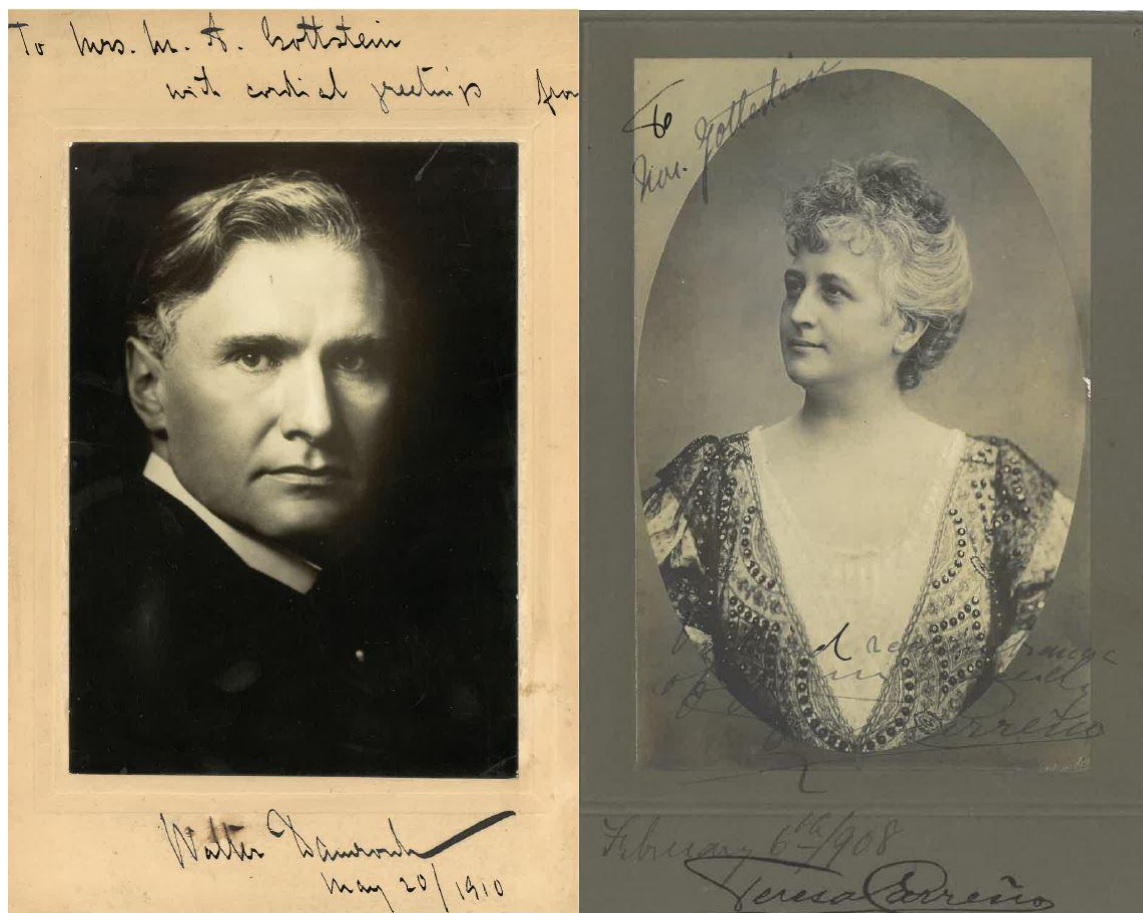 To Mrs. M. A. Gottstein
with cordial greetings from
Walter Damrosch
May 20/1910
To
Mrs. Gottstein
remembrance
of
Carreño
February 6th/908
Teresa Carreño